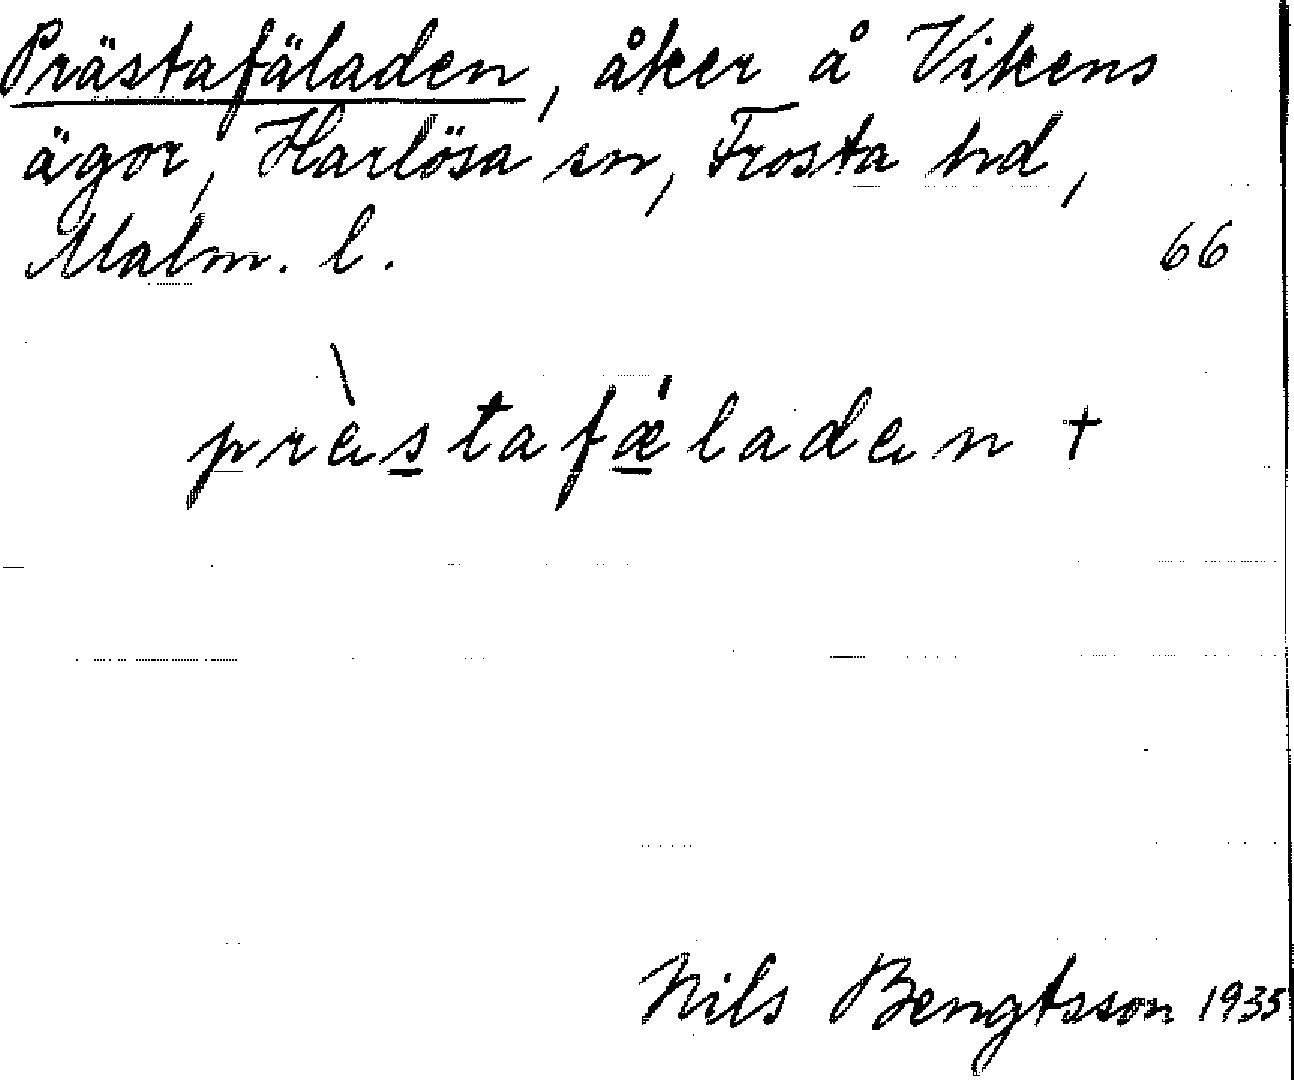 Prästafäladen, åker å Vikens
ägor, Harlösa sn, Frosta hd,
Malm. l. 66
prɐ̀stafǽladɐn +
Nils Bengtsson 1935